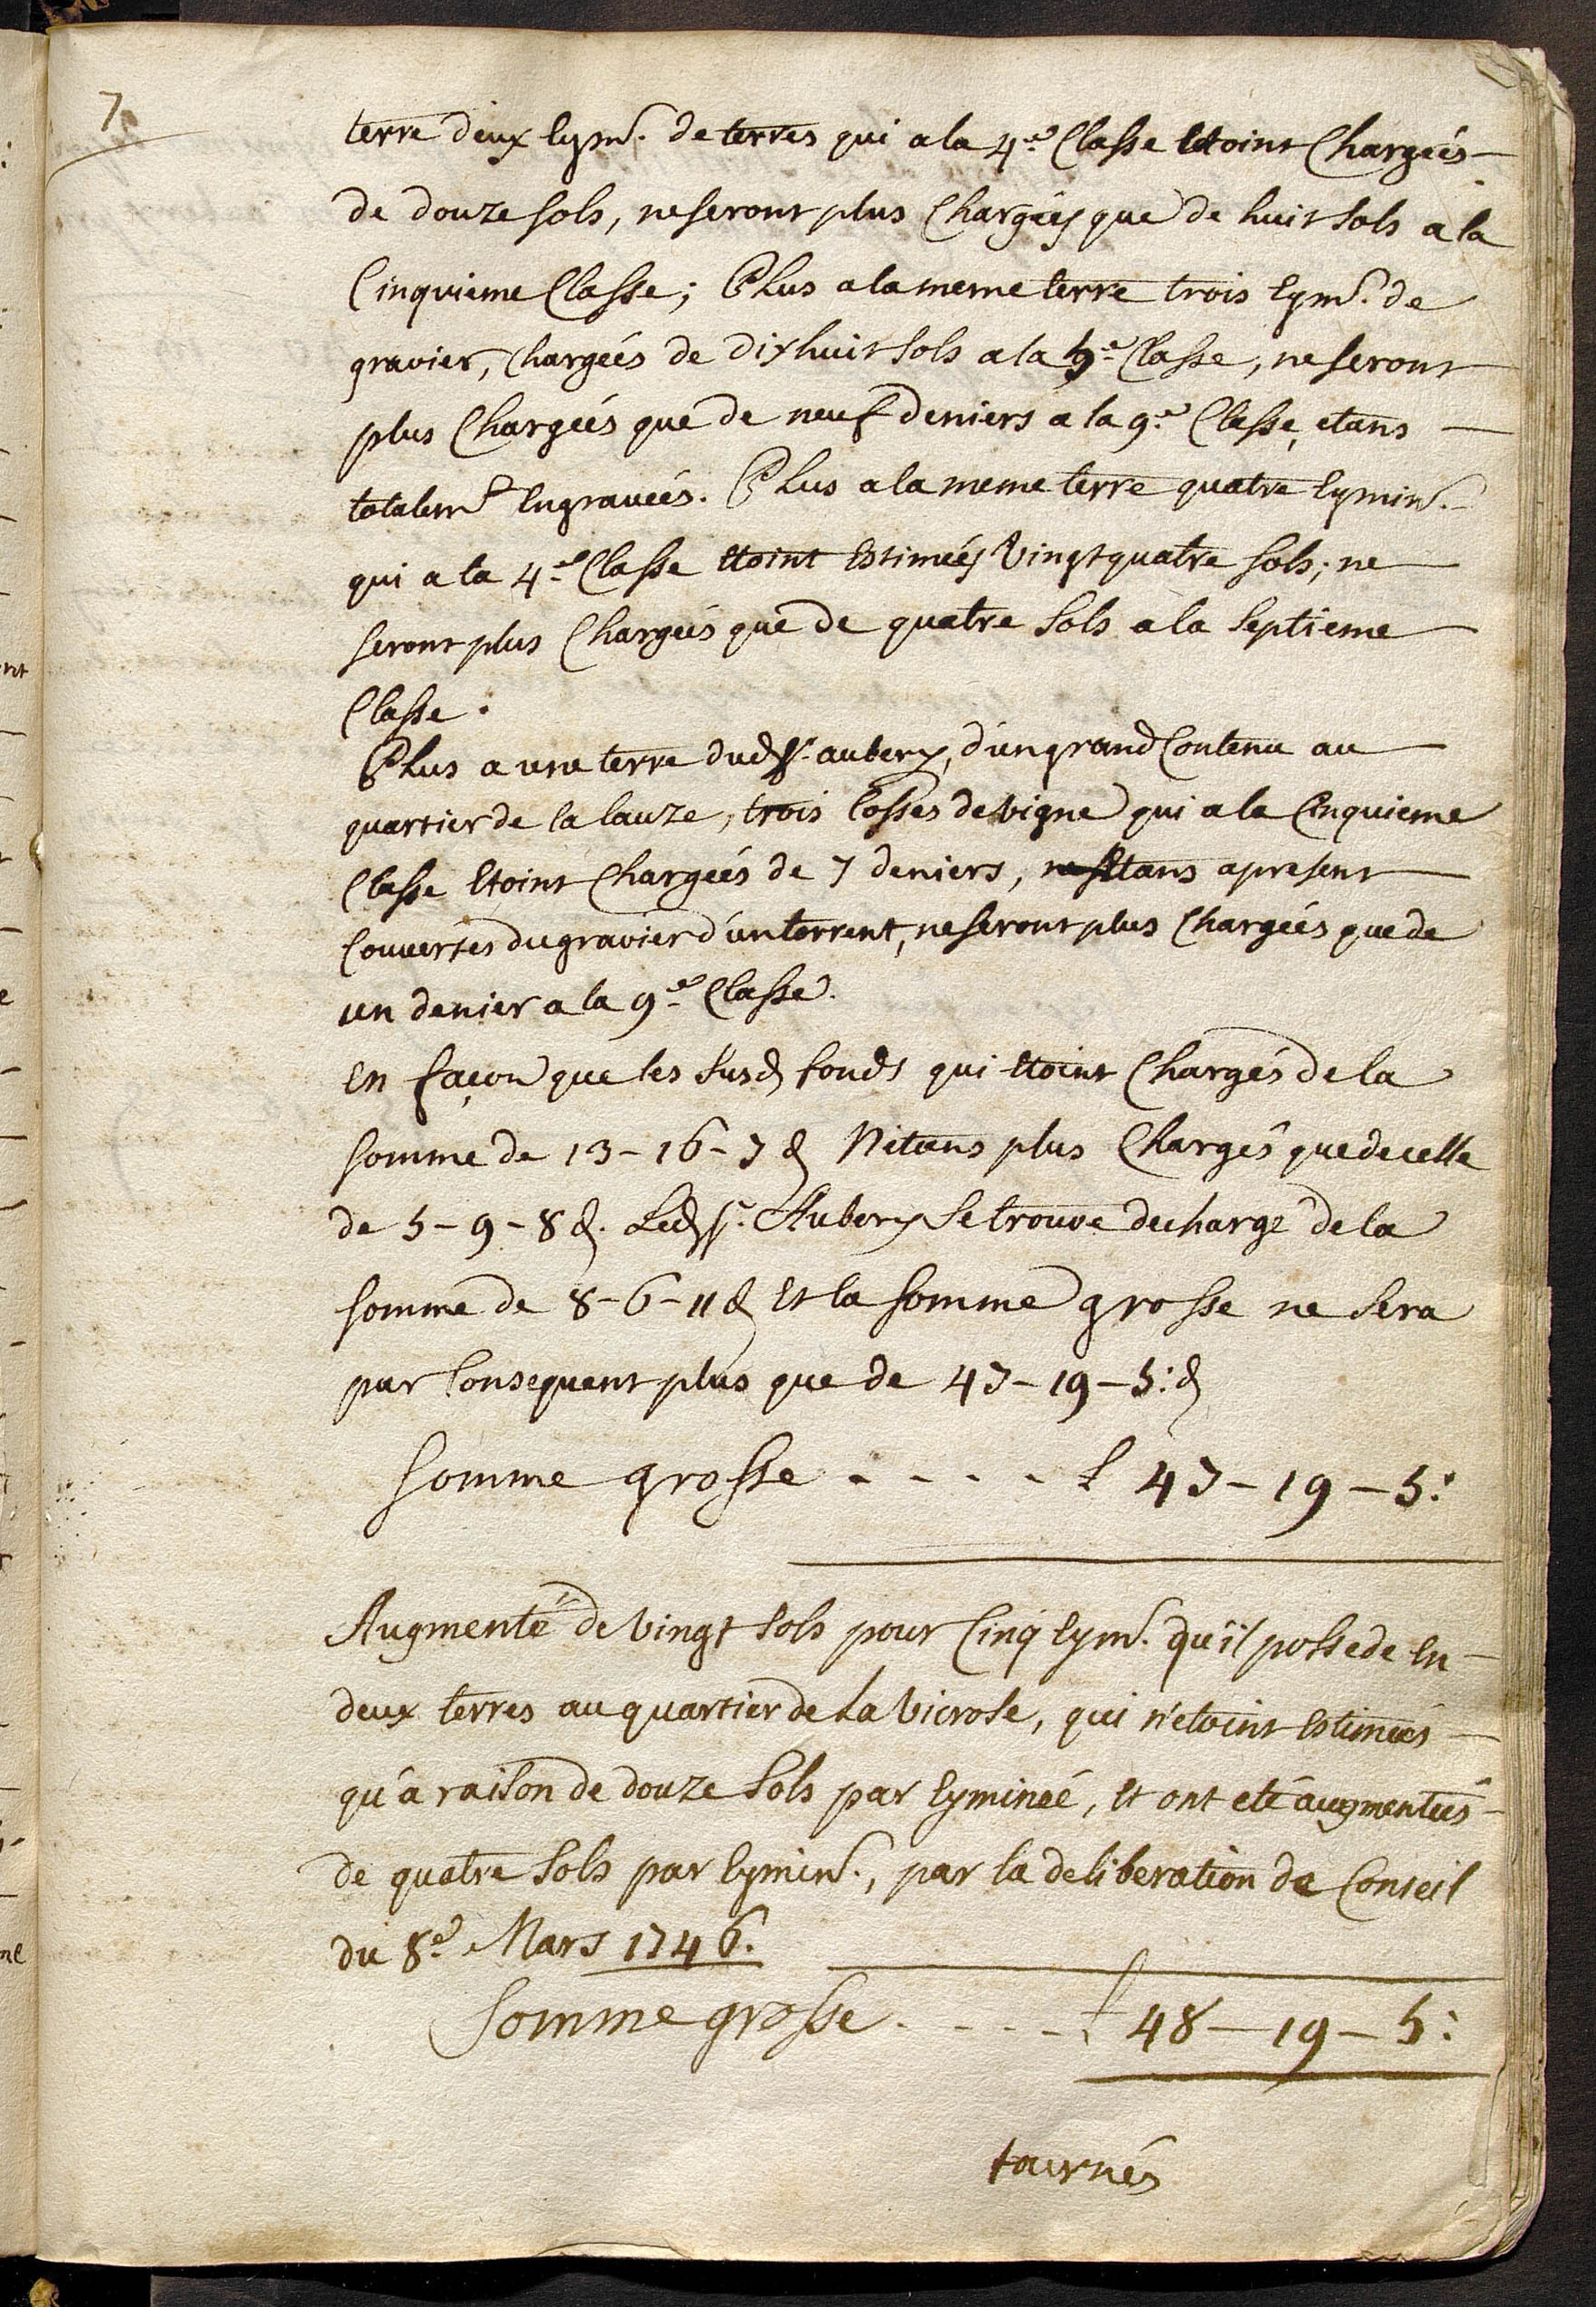 7.
terre deux Eym.s de terres qui a la 4.e Classe Etoint Chargées
de douze sols, ne seront plus Chargées que de huit sols a la
Cinquieme Classe; Plus a la meme terre trois Eym.s de
gravier, Chargées de dix huit sols a la Classe, ne seront
plus Chargées que de neuf deniers a la 9.e Classe, etans
totalemt Engravées. Plus a la meme terre quatre Eymin.s
qui a la 4.e Classe Etoint Estimées Vingt quatre sols; ne
seront plus Chargées que de quatre sols a la Septieme
Classe.
Plus a une terre dud sr. aubery, d'un grand Contenu au
quartier de la lauze, trois Cosses de vigne qui a la Cinquieme
Classe Etoint Chargées de 7 deniers, Etans apresent
Couvertes du gravier d'un torrent, ne seront plus Chargées que de
un denier a la 9.e Classe.
En façon que les susd fonds qui Etoint Chargés de la
somme de 13-16-7 d N'etans plus Chargés que de celle
de 5-9-8 d. Led sr. Aubery se trouve decharge de la
somme de 8-6-11 d Et la somme grosse ne sera
par Consequent plus que de 47-19-5: d
Somme grosse - - - - £ 47-19-5:
Augmenté de Vingt sols pour Cinq Eym.s qu'il possede En
deux terres au quartier de La Vicrose, qui n'etoint Estimées
qu'a raison de douze sols par Eyminée, Et ont eté augmentées
de quatre sols par Eymin.s, par la deliberation de Conseil
du 8.e Mars 1746.
Somme grosse - - - - £ 48-19-5:
tournés